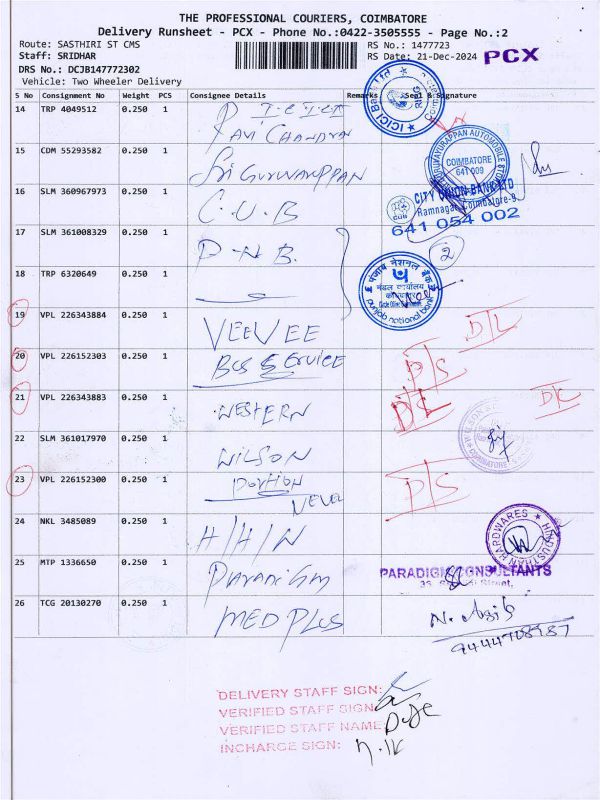 THE PROFESSIONAL COURIERS, COIMBATORE
Delivery Runsheet - PCX - Phone No.:0422-3505555 - Page No.:2
Route: SASTHIRI ST CMS
RS No.: 1477723
Staff: SRIDHAR
RS Date: 21-Dec-2024
PCX
DRS No.: DCJB147772302
Vehicle: Two Wheeler Delivery
S No Consignment No Weight PCS Consignee Details Remarks Seal & Signature
14 TRP 4049512 0.250 1
I C I C I
Ravi Chandran
ICICI Bank
15 CDM 55293582 0.250 1
Sri Guruvayuppan
COIMBATORE
641 009
16 SLM 360967973 0.250 1
C.U.B
CUB
CITY UNION BANK LTD
Ramnagar, Coimbatore-9.
641 054 002
17 SLM 361008329 0.250 1
P.N.B.
2
18 TRP 6320649 0.250 1
पंजाब नैशनल बैंक
मंडल कार्यालय
punjab national bank
19 VPL 226343884 0.250 1
VEEVEE
D/L
20 VPL 226152303 0.250 1
Bus Service
D/S
21 VPL 226343883 0.250 1
WESTERN
D/L
D/L
22 SLM 361017970 0.250 1
WILSON
COIMBATORE
23 VPL 226152300 0.250 1
D/S
24 NKL 3485089 0.250 1
H/H/W
HINDUSTHAN HARDWARES
25 MTP 1336650 0.250 1
PARADIGM CONSULTANTS
Street,
26 TCG 20130270 0.250 1
MED PLUS
DELIVERY STAFF SIGN:
VERIFIED STAFF SIGN:
VERIFIED STAFF NAME
INCHARGE SIGN: